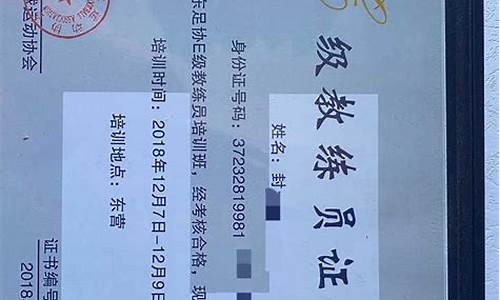 级教练员证
姓名:封
身份证号码:37232819981
东足协E级教练员培训班,经考核合格,现
培训时间:2018年12月7日-12月9日
培训地点:东营
运动协会
证书编号
2018